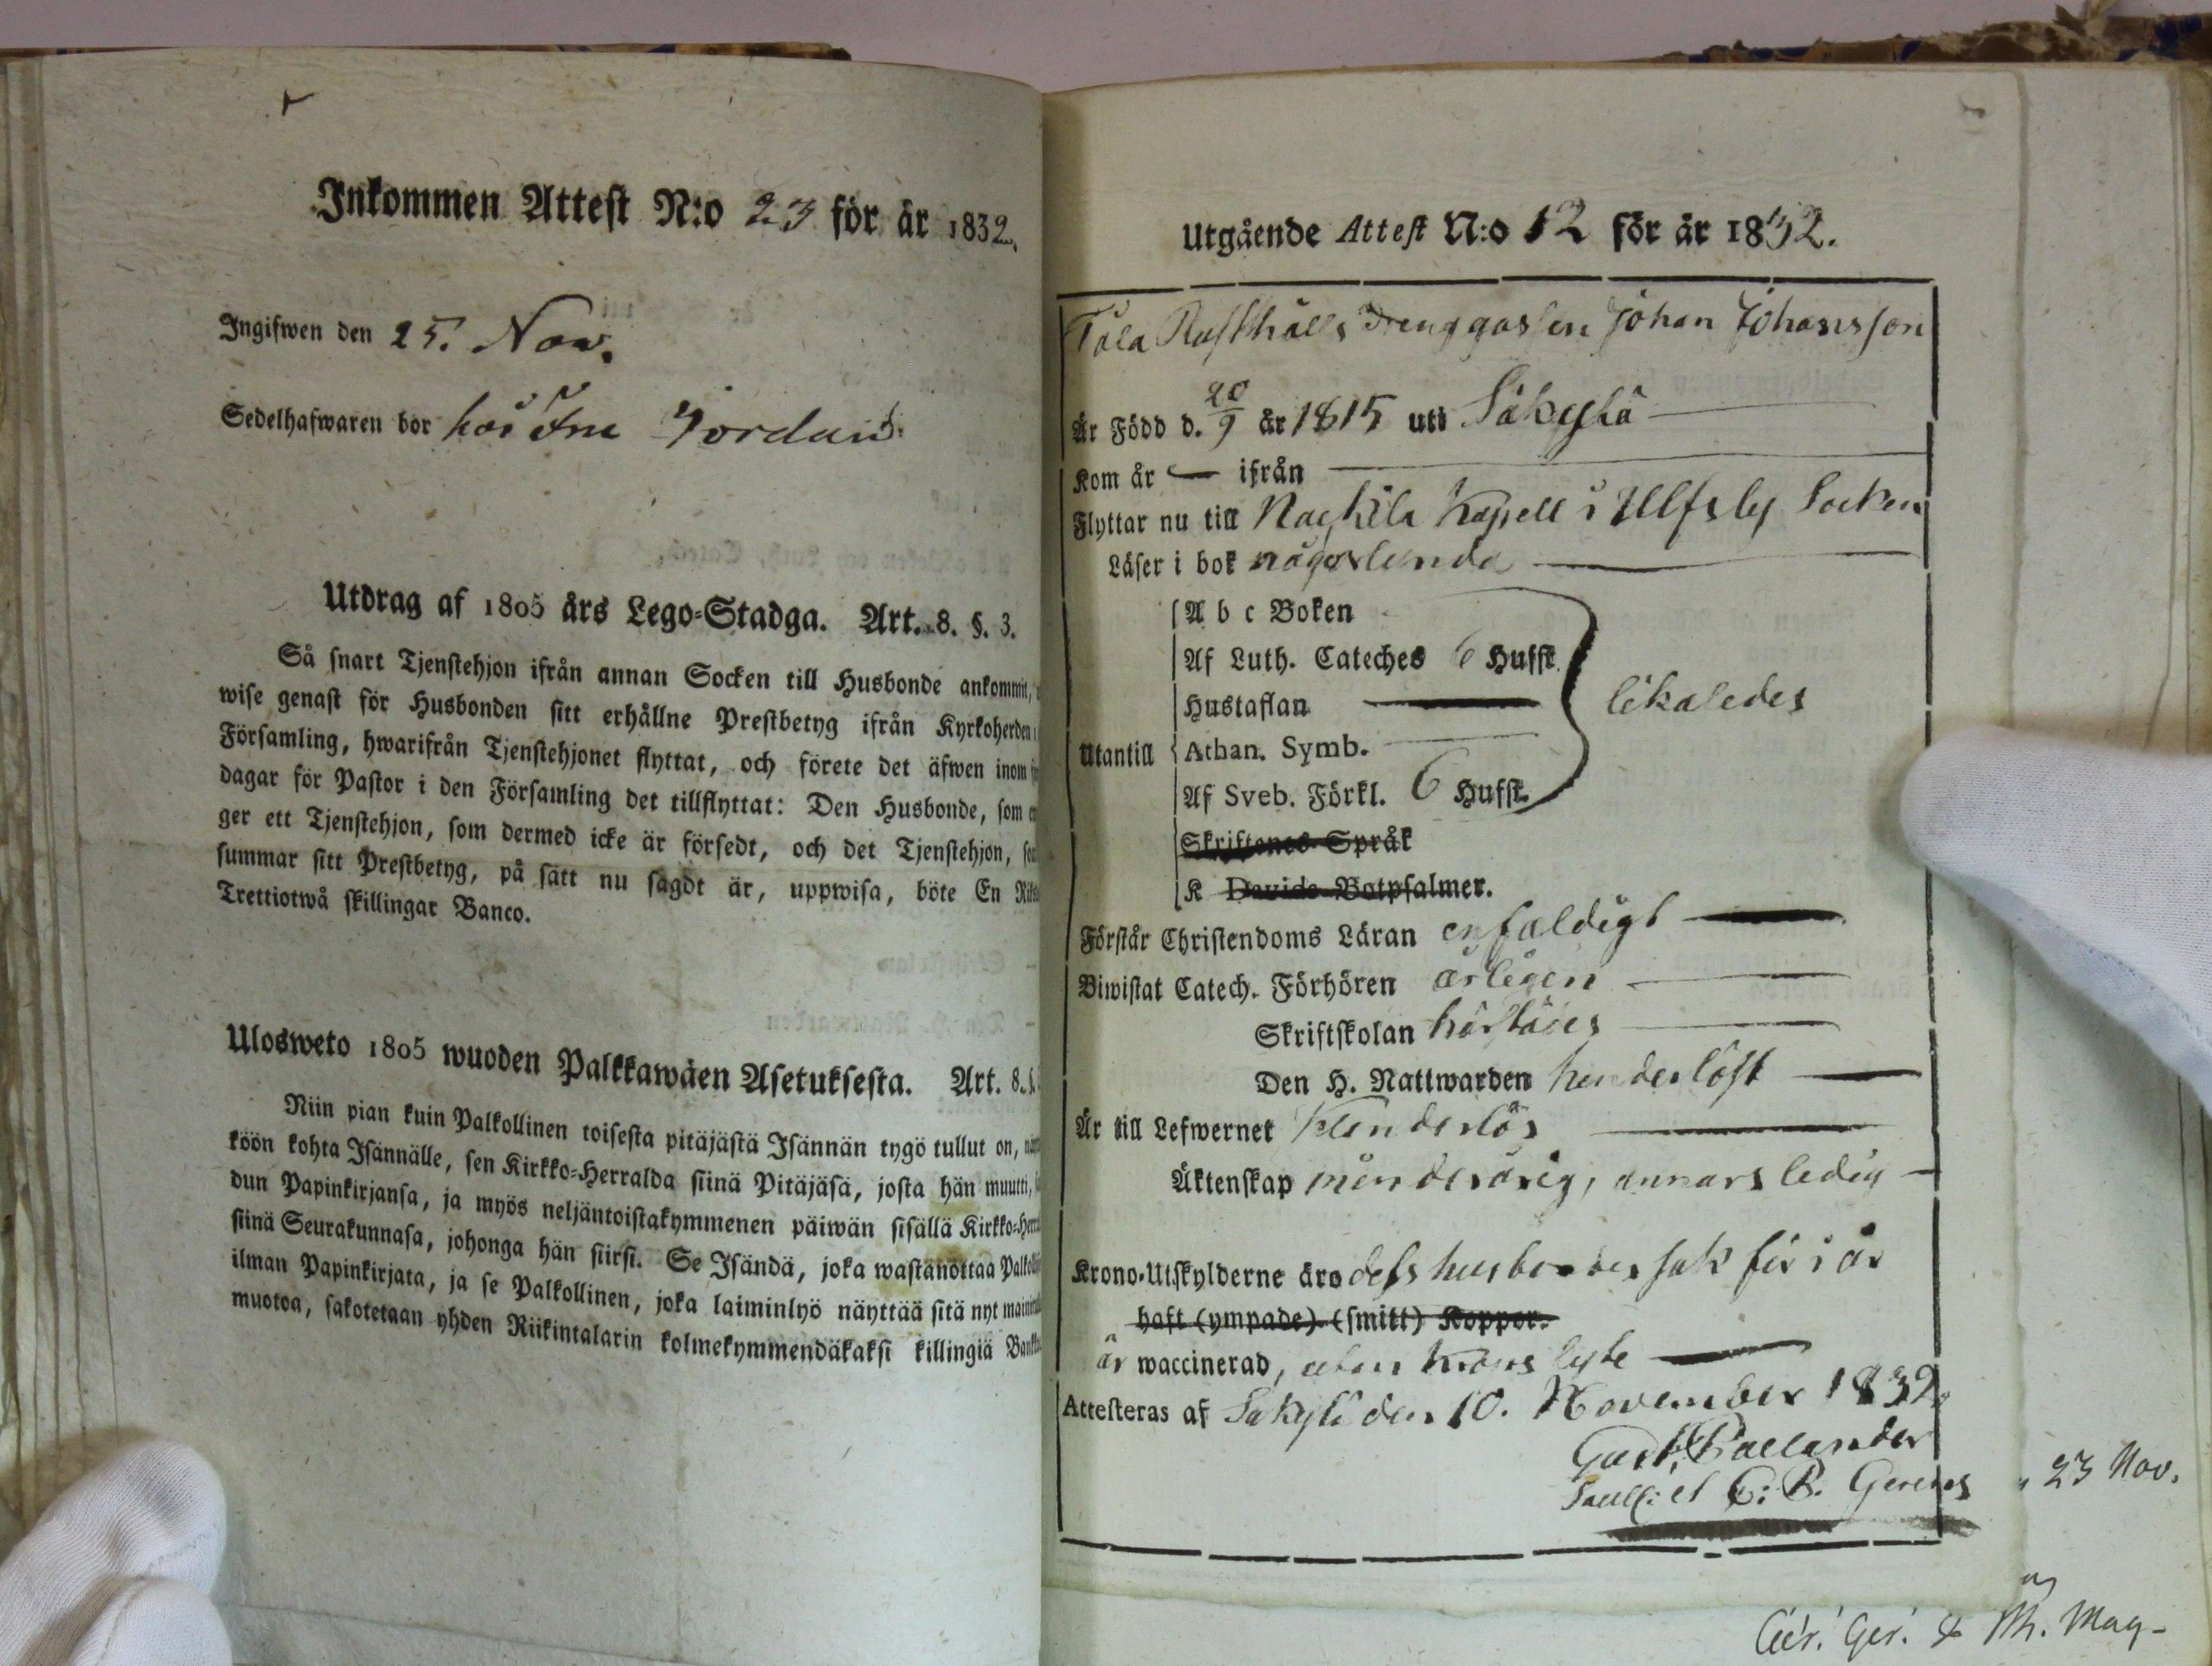 Inkommen Attest N:o 23 för år 1832.
Ingifwen den 25. Nov.
Sedelhafwaren bor hos
Utdrag af 1805 års Lego-Stadga. Art. 8. §. 3.
Så snart Tjenstehjon ifrån annan Socken till Husbonde ankommit,
wise genast för Husbonden sitt erhållne Prestbetyg ifrån Kyrkoherden
Församling, hwarifrån Tjenstehjonet flyttat, och förete det äfwen inom
dagar för Pastor i den Församling det tillflyttat: Den Husbonde, som
ger ett Tjenstehjon, som dermed icke är försedt, och det Tjenstehjon,
summar sitt Prestbetyg, på sätt nu sagdt är, uppwisa, böte En
Trettiotwå skillingar Banco.
Ulosweto 1805 wuoden Palkkawäen Asetuksesta. Art. 8.
Niin pian kuin Palkollinen toisesta pitäjästä Isännän tygö tullut on,
köön kohta Isännälle, sen Kirkko-Herralda siinä Pitäjäsä, josta hän muutti,
dun Papinkirjansa, ja myös neljäntoistakymmenen päiwän sisällä Kirkko-
siinä Seurakunnasa, johonga hän siirsi. Se Isändä, joka wastanottaa
ilman Papinkirjata, ja se Palkollinen, joka laiminlyö näyttää sitä nyt
muotoa, sakotetaan yhden Riikintalarin kolmekymmendäkaksi killingiä
Utgående Attest N:o 12 för år 1832.
Tola Rusthålls Drenggossen Johan Johansson
Är Född d. 20/9 år 1815 uti Säkylä
Kom år — ifrån
Flyttar nu till Nackila Kapell i Ulfsby Socken
Läser i bok någorlunda
A b c Boken
Af Luth. Cateches 6 Hufst.
Hustaflan
likaledes
Utantill
Athan. Symb.
Af Sveb. Förkl. 6 Hufst.
Skriftenes Språk
K Davids Botpsalmer.
Förstår Christendoms Läran enfaldigt
Biwistat Catech. Förhören årligen
Skriftskolan
Den H. Nattwarden hinderlöst
Är till Lefwernet klanderlös
Äktenskap minderårig, annars ledig
Krono-Utskylderne äro dess husbondes sak för i år
haft (ympade) (smitt) Koppor.
är waccinerad, utan lyte
Attesteras af Säkylä den 10. November 1832.
Gust. Pallander
23 Nov.